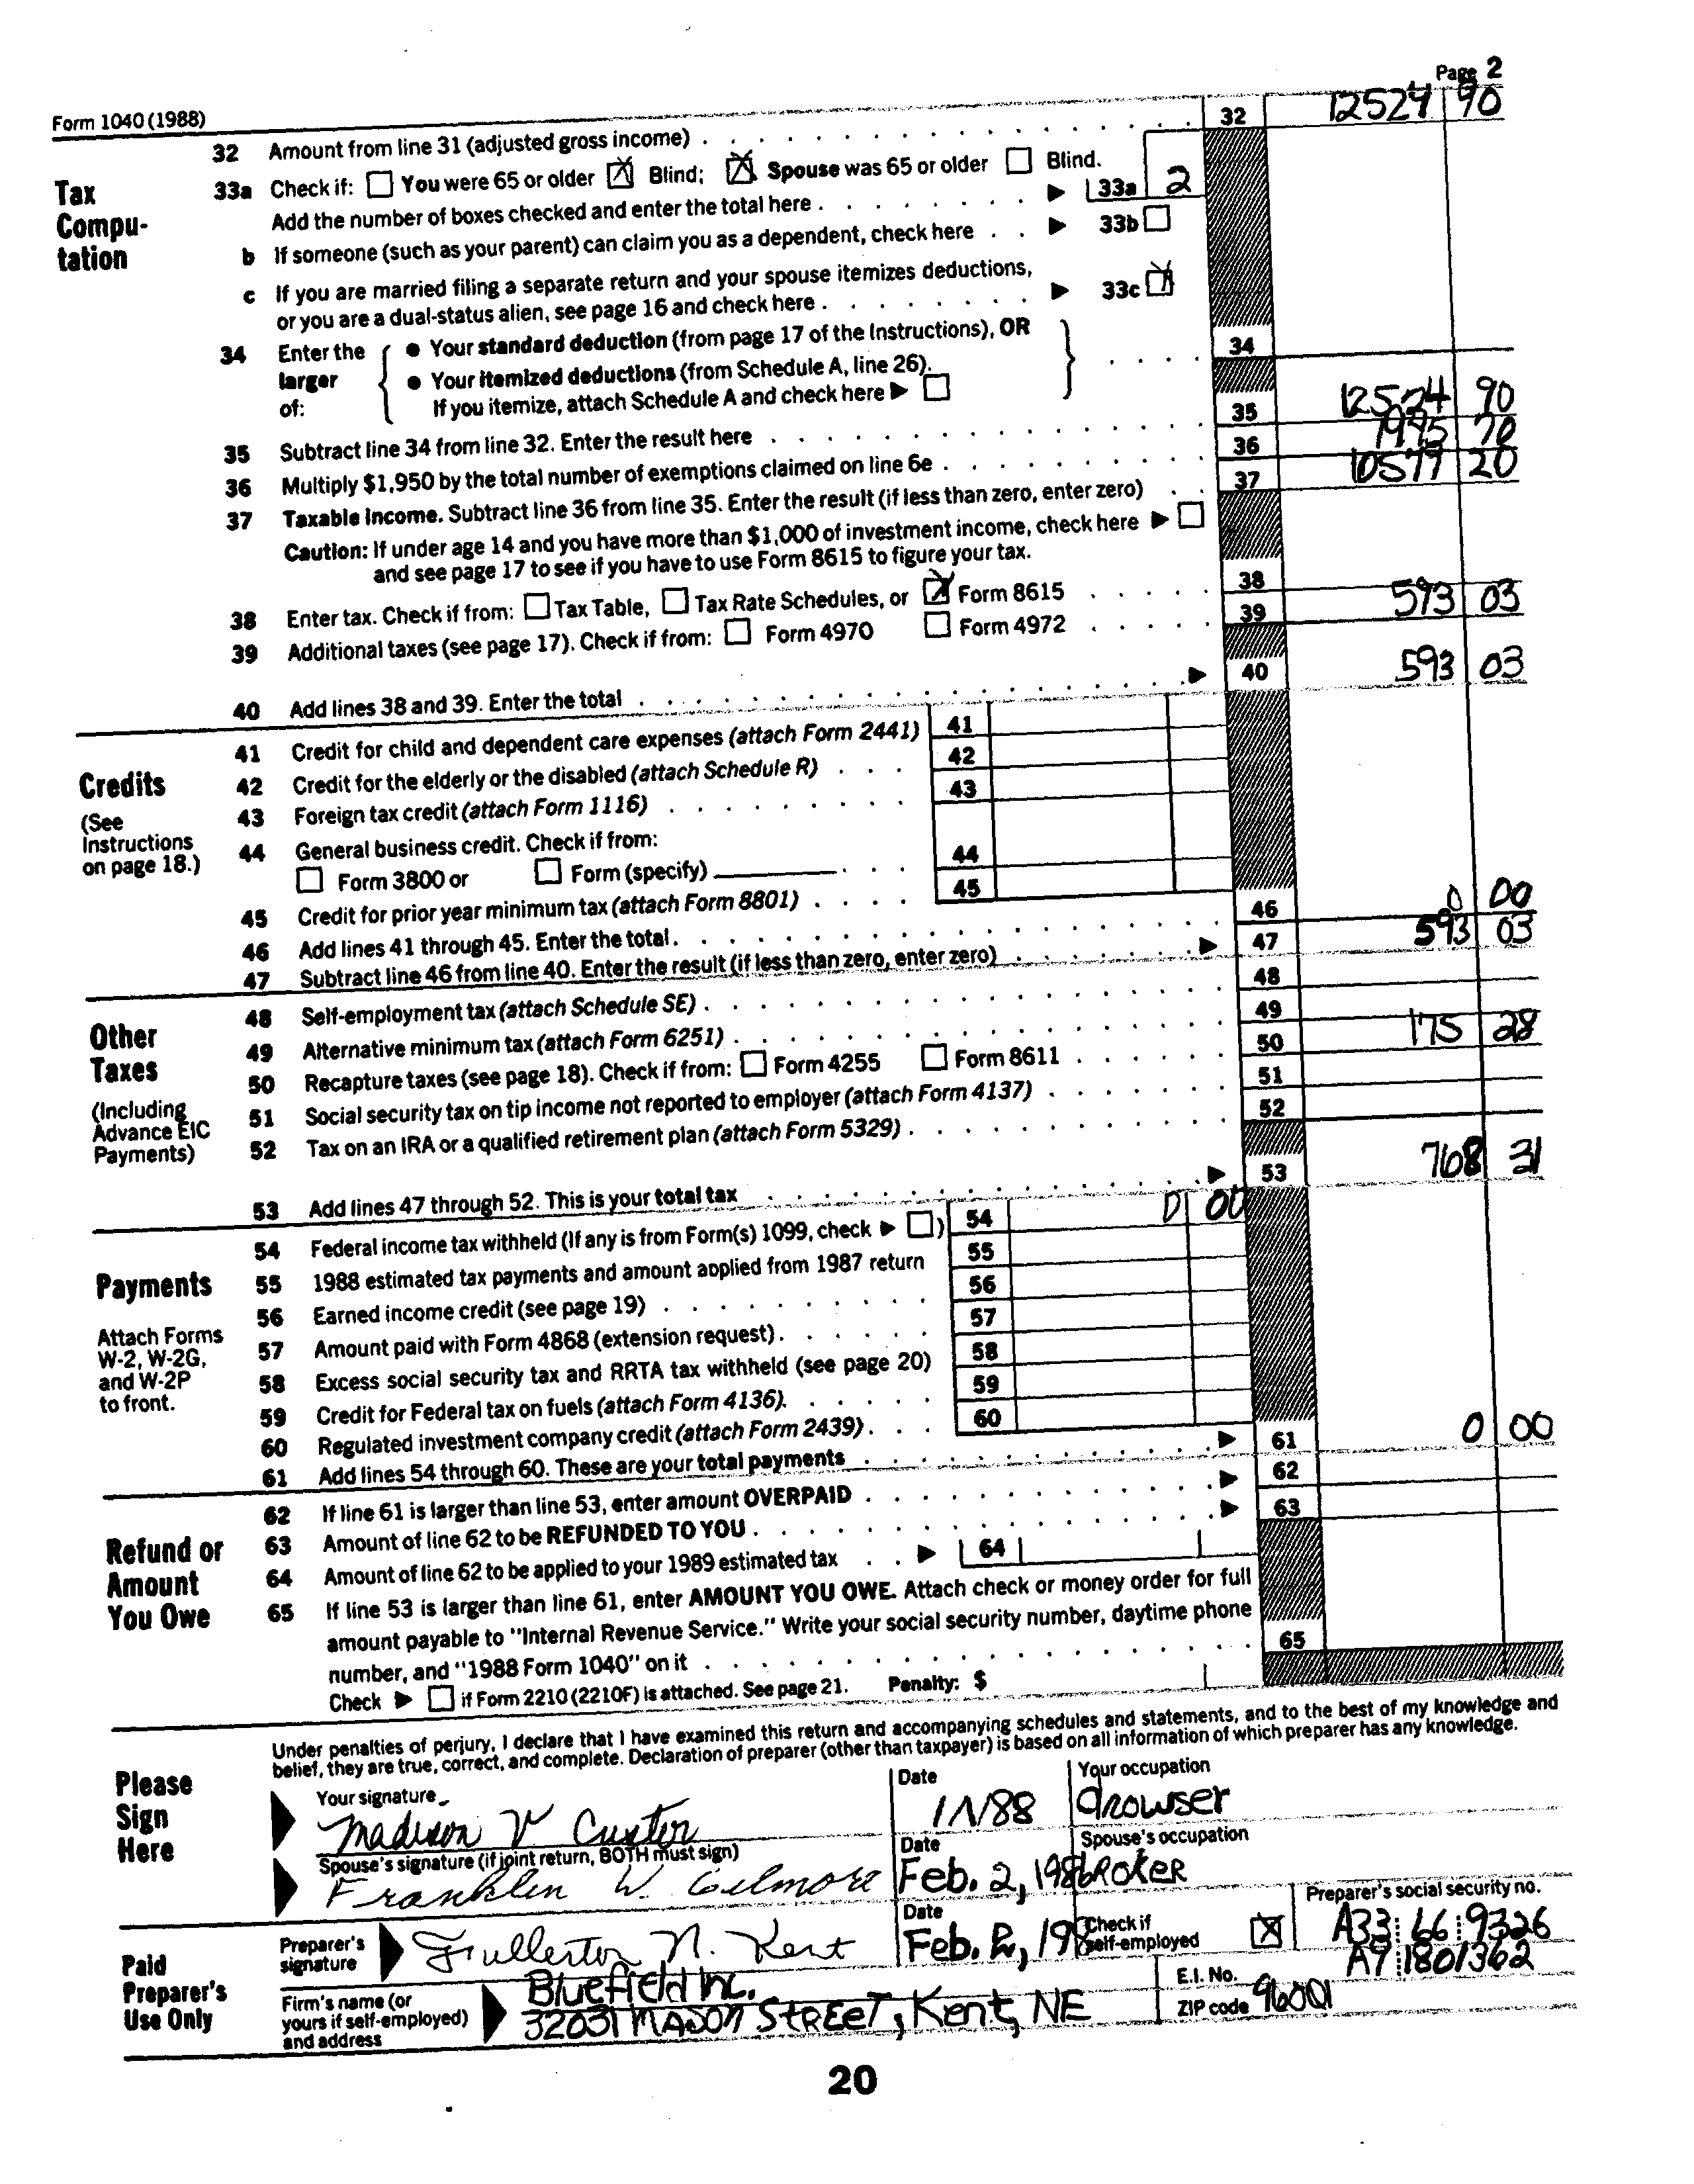 Page 2
Form 1040 (1988)
32 Amount from line 31 (adjusted gross income) 32 12524 90
Tax Compu-tation
33a Check if: You were 65 or older Blind; Spouse was 65 or older Blind.
Add the number of boxes checked and enter the total here 33a 2
b If someone (such as your parent) can claim you as a dependent, check here 33b
c If you are married filing a separate return and your spouse itemizes deductions,
or you are a dual-status alien, see page 16 and check here 33c
34 Enter the larger of: Your standard deduction (from page 17 of the Instructions), OR 34
Your itemized deductions (from Schedule A, line 26).
If you itemize, attach Schedule A and check here
35 Subtract line 34 from line 32. Enter the result here 35 12524 90
36 Multiply $1,950 by the total number of exemptions claimed on line 6e 36 70
37 Taxable income. Subtract line 36 from line 35. Enter the result (if less than zero, enter zero) 37 20
Caution: If under age 14 and you have more than $1,000 of investment income, check here
and see page 17 to see if you have to use Form 8615 to figure your tax.
38 Enter tax. Check if from: Tax Table, Tax Rate Schedules, or Form 8615 38
39 Additional taxes (see page 17). Check if from: Form 4970 Form 4972 39 593 03
40 Add lines 38 and 39. Enter the total 40 593 03
Credits
(See Instructions on page 18.)
41 Credit for child and dependent care expenses (attach Form 2441) 41
42 Credit for the elderly or the disabled (attach Schedule R) 42
43 Foreign tax credit (attach Form 1116) 43
44 General business credit. Check if from:
Form 3800 or Form (specify) 44
45 Credit for prior year minimum tax (attach Form 8801) 45
46 Add lines 41 through 45. Enter the total. 46 0 00
47 Subtract line 46 from line 40. Enter the result (if less than zero, enter zero) 47 593 03
Other Taxes
(Including Advance EIC Payments)
48 Self-employment tax (attach Schedule SE) 48
49 Alternative minimum tax (attach Form 6251) 49
50 Recapture taxes (see page 18). Check if from: Form 4255 Form 8611 50 175 28
51 Social security tax on tip income not reported to employer (attach Form 4137) 51
52 Tax on an IRA or a qualified retirement plan (attach Form 5329) 52
53 Add lines 47 through 52. This is your total tax 53 768 31
Payments
Attach Forms W-2, W-2G, and W-2P to front.
54 Federal income tax withheld (If any is from Form(s) 1099, check ) 54 0 00
55 1988 estimated tax payments and amount applied from 1987 return 55
56 Earned income credit (see page 19) 56
57 Amount paid with Form 4868 (extension request) 57
58 Excess social security tax and RRTA tax withheld (see page 20) 58
59 Credit for Federal tax on fuels (attach Form 4136) 59
60 Regulated investment company credit (attach Form 2439) 60
61 Add lines 54 through 60. These are your total payments 61 0 00
Refund or Amount You Owe
62 If line 61 is larger than line 53, enter amount OVERPAID 62
63 Amount of line 62 to be REFUNDED TO YOU 63
64 Amount of line 62 to be applied to your 1989 estimated tax 64
65 If line 53 is larger than line 61, enter AMOUNT YOU OWE. Attach check or money order for full
amount payable to "Internal Revenue Service." Write your social security number, daytime phone
number, and "1988 Form 1040" on it 65
Check if Form 2210 (2210F) is attached. See page 21. Penalty: $
Please Sign Here
Under penalties of perjury, I declare that I have examined this return and accompanying schedules and statements, and to the best of my knowledge and
belief, they are true, correct, and complete. Declaration of preparer (other than taxpayer) is based on all information of which preparer has any knowledge.
Your signature Date Your occupation
Madison V Custer 1/1/88 growser
Spouse's signature (if joint return, BOTH must sign) Date Spouse's occupation
Franklin W. Gilmore Feb. 2, 1986 broker
Paid Preparer's Use Only
Preparer's signature Date Check if self-employed Preparer's social security no.
Fullerton N. Kent Feb. A33 66 9326
Firm's name (or yours if self-employed) and address
Bluefield Inc. E.I. No. A9 1801362
32031 MASON STREET, Kent, NE ZIP code 96001
20